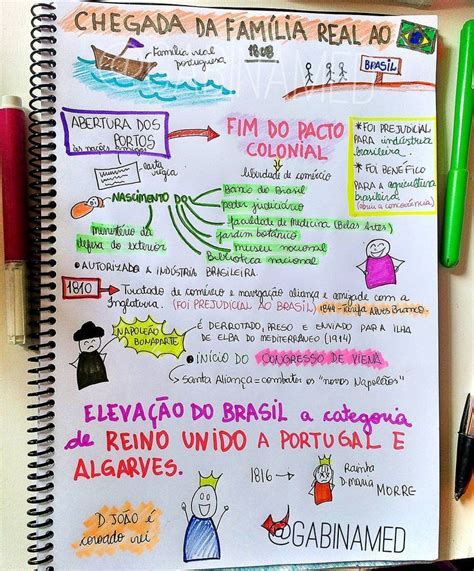 CHEGADA DA FAMÍLIA REAL AO
1808
Família real
portuguesa
BRASIL
GABINAMED
ABERTURA DOS
PORTOS
às nações amigas
carta
régia
FIM DO PACTO
COLONIAL
liberdade de comércio
* FOI PREJUDICIAL
PARA indústria
brasileira.
* FOI BENÉFICO
PARA a agricultura
brasileira
NASCIMENTO DO
Banco do Brasil
poder judiciário
faculdade de Medicina (Belas Artes)
jardim botânico
museu nacional
Biblioteca nacional
Ministério da
defesa do exterior
• AUTORIZADO A INDÚSTRIA BRASILEIRA.
1810
Tratado de comércio e navegação aliança e amizade com a
Inglaterra. (FOI PREJUDICIAL AO BRASIL) 1844 - Tarifa Alves Branco
NAPOLEÃO
BONAPARTE
É DERROTADO, PRESO E ENVIADO PARA A ILHA
DE ELBA DO MEDITERRÂNEO (1914)
• INÍCIO DO CONGRESSO DE VIENA
Santa Aliança = combater os "novos Napoleões"
ELEVAÇÃO DO BRASIL a categoria
de REINO UNIDO A PORTUGAL E
ALGARVES.
1816
Rainha
D. Maria
MORRE
D. JOÃO é
coroado rei
@GABINAMED